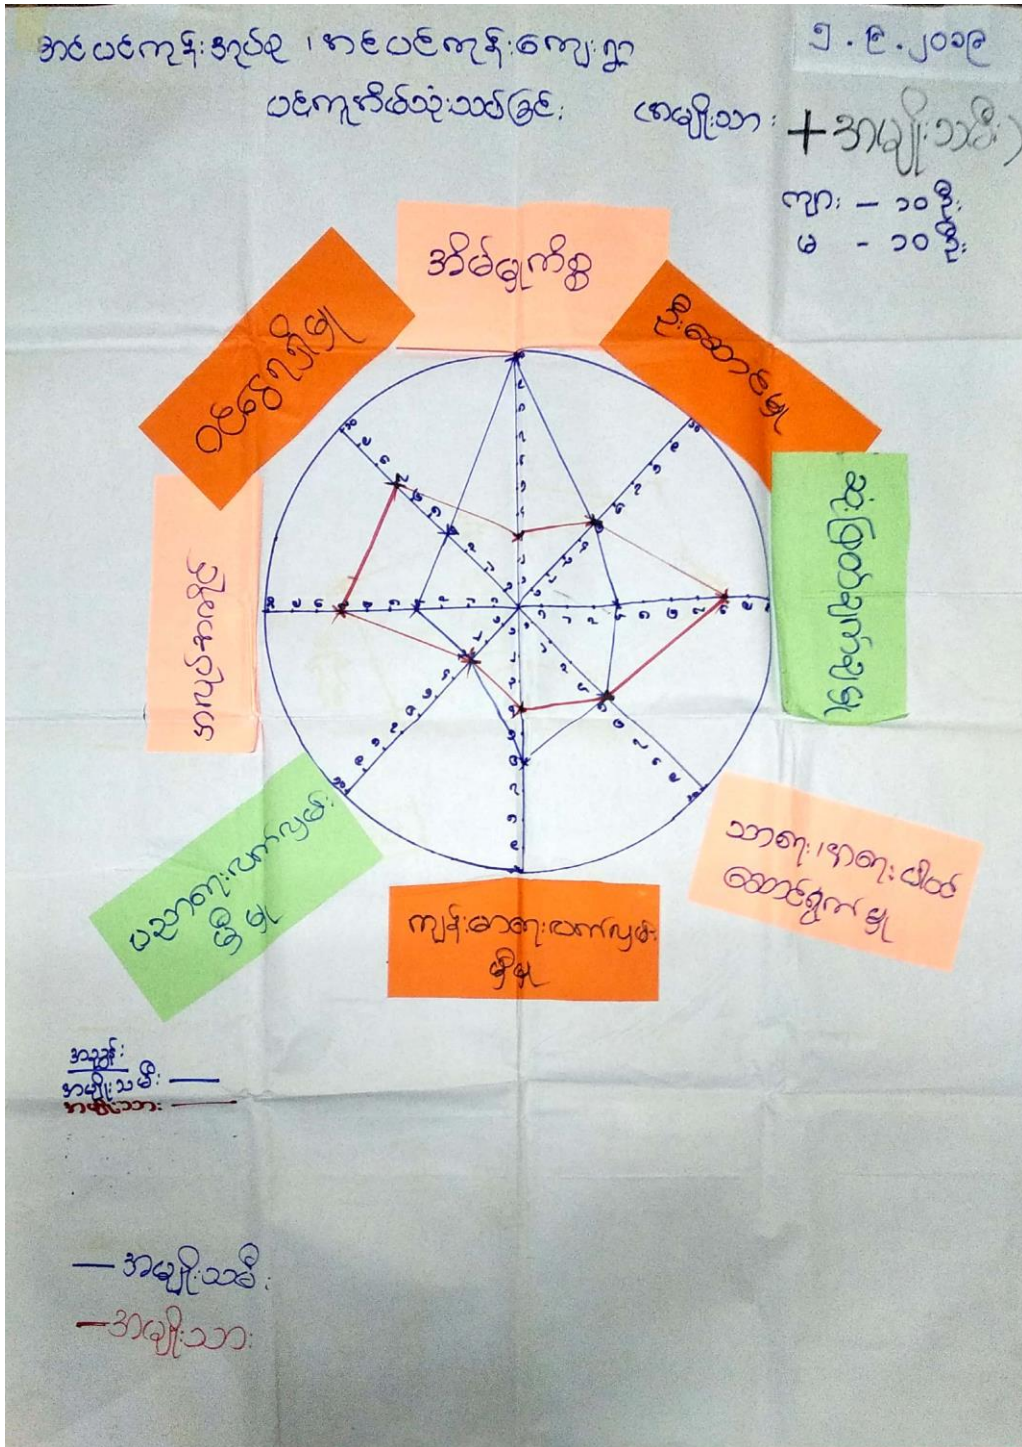 အင်ပင်ကုန်းအုပ်စု ၊ အင်ပင်ကုန်းကျေးရွာ
၅.၉.၂၀၁၉
ပင့်ကူအိမ်သုံးသပ်ခြင်း (အမျိုးသား + အမျိုးသမီး)
ကျား - ၁၀ ဦး
မ - ၁၀ ဦး
အိမ်မှုကိစ္စ
ဦးဆောင်မှု
ဆုံးဖြတ်ချက်ချမှု
သာရေး၊ နာရေး ပါဝင်
ဆောင်ရွက်မှု
ကျန်းမာရေးလက်လှမ်း
မှီမှု
ပညာရေးလက်လှမ်း
မှီမှု
ဝင်ငွေရရှိမှု
အညွှန်း
အမျိုးသမီး —
အမျိုးသား —
— အမျိုးသမီး
— အမျိုးသား